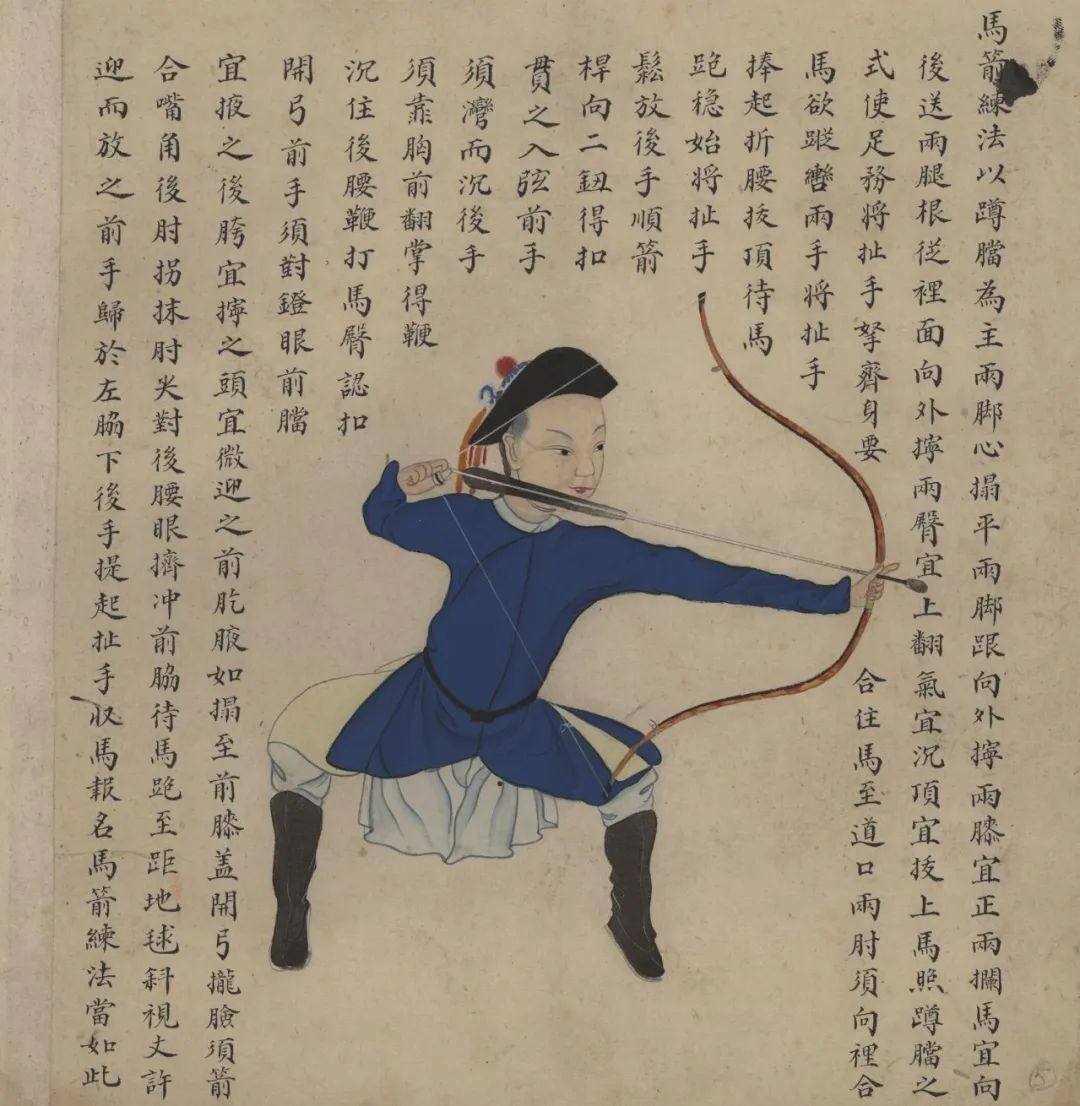 馬箭練法以蹲臗為主兩脚心搨平兩脚跟向外擰兩膝宜正兩攔馬宜向
後送兩腿根從裡面向外擰兩臀宜上翻氣宜沉頂宜拔上馬照蹲臗之
式使足務將扯手拏齊身要合住馬至道口兩肘須向裡合
馬欲蹤轡兩手將扯手
捧起折腰拔頂待馬
跑穏始將扯手
鬆放後手順箭
桿向二鈕得扣
貫之入弦前手
須灣而沉後手
須靠胸前翻掌得鞭
沉住後腰鞭打馬臀認扣
開弓前手須對鐙眼前臗
宜掖之後胯宜擰之頭宜微迎之前肐腋如搨至前膝盖開弓攏臉須箭
合嘴角後肘拐抹肘尖對後腰眼擠冲前脇待馬跑至距地毬斜視丈許
迎而放之前手歸於左脇下後手提起扯手収馬報名馬箭練法當如此
5